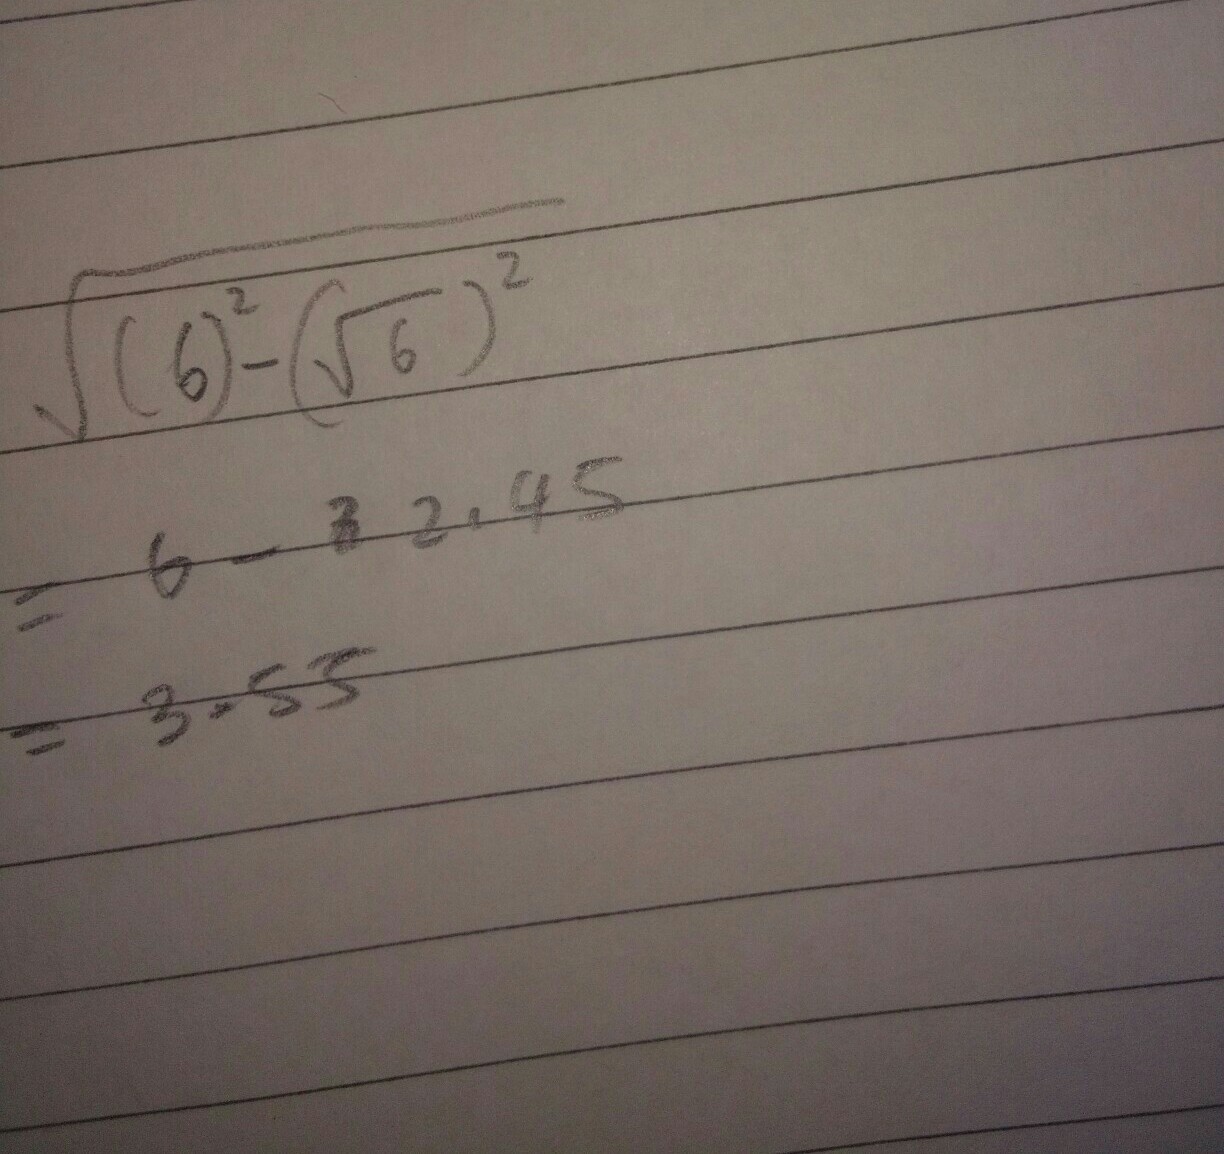 √((6)²-(√6)²)
= 6 - 2.45
= 3.55